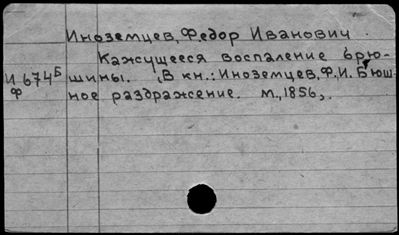 Иноземцев, Федор Иванович.
Кажущееся воспаление брю-
И 674Б шины. (В кн.: Иноземцев, Ф.И. Бюш-
Ф ное раздражение. М., 1856,.